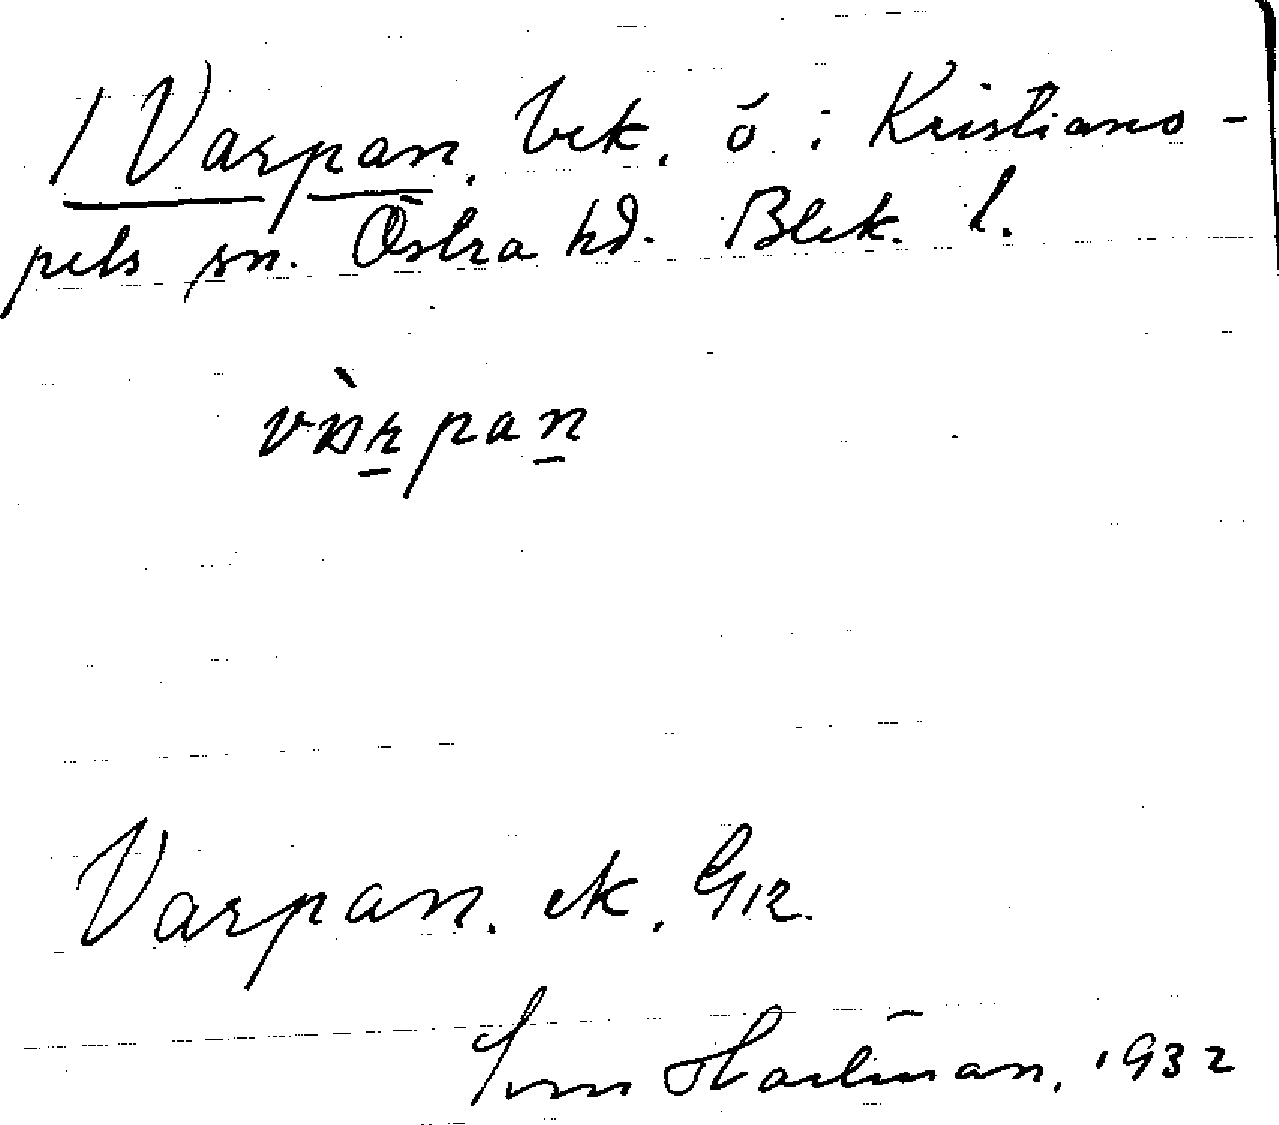 / Varpan. bek. ö i Kristiano-
pels sn. Östra hd. Blek. l.
vàrpan
Varpan. ek. G12.
Hartman, 1932